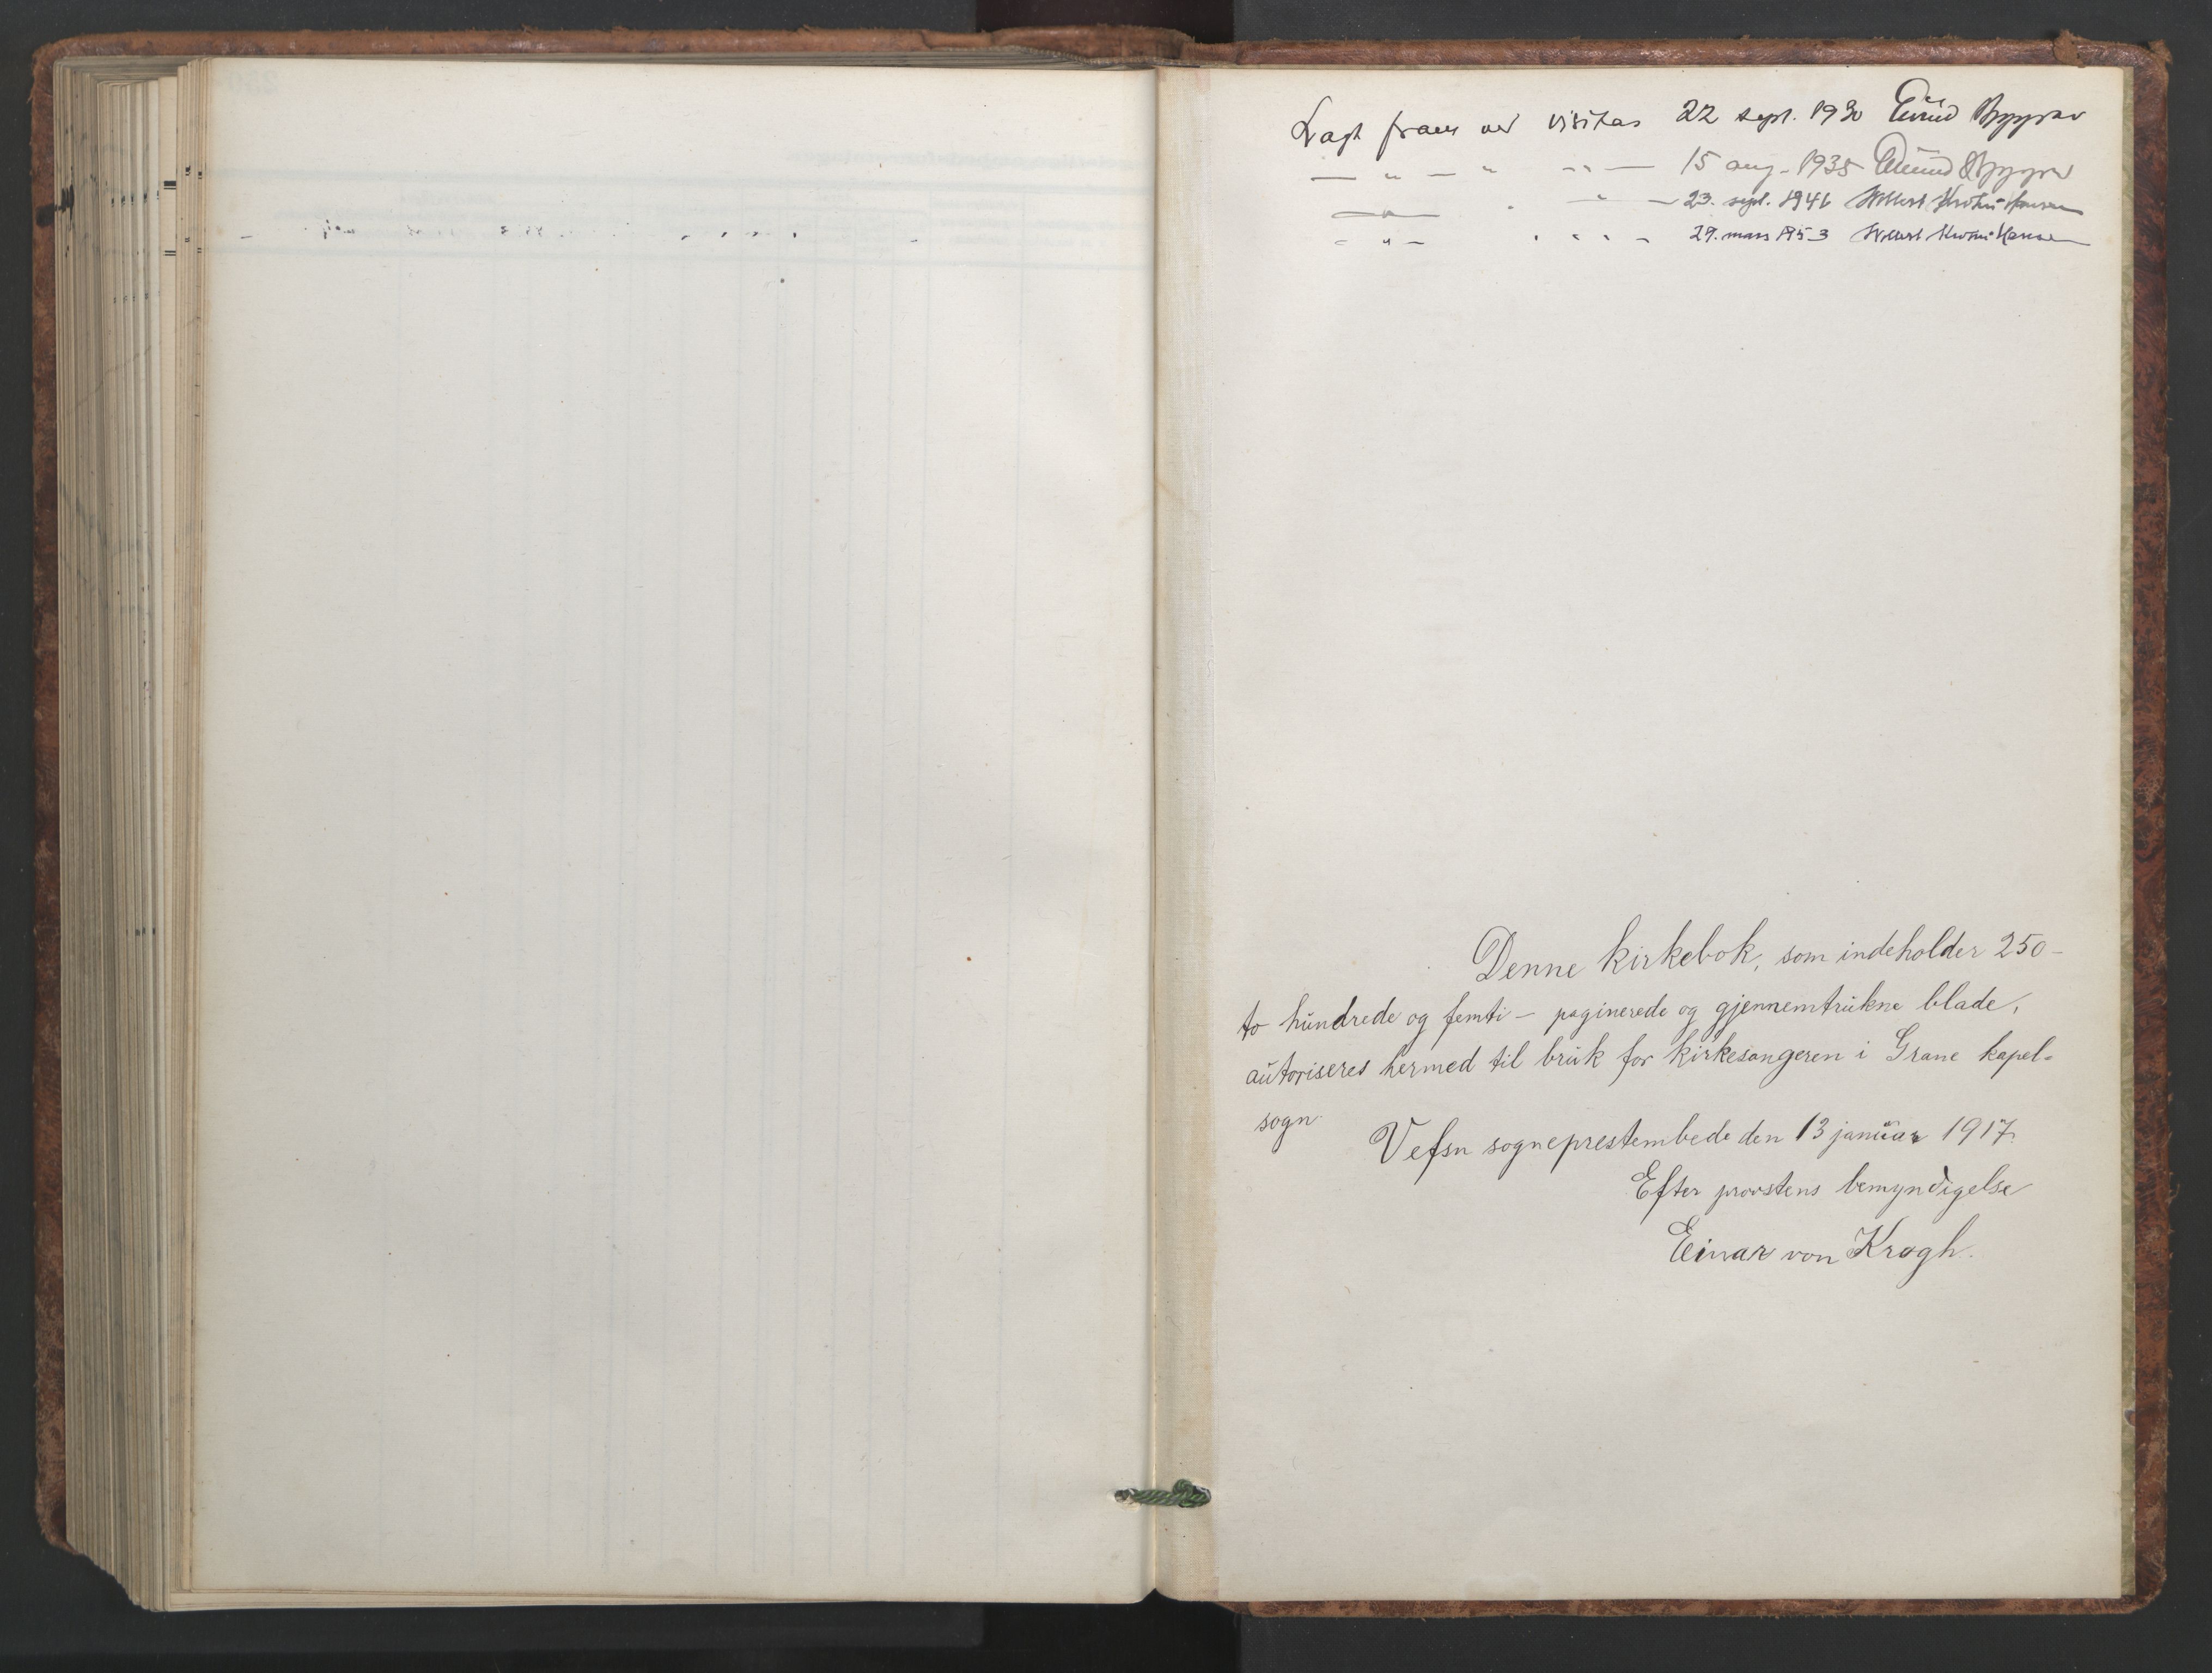 Lagt fram ved visitas 22 sept. 1930 Eivind Berggrav
— " — " " " — 15 aug. 1935 Eivind Berggrav
— " — " " — 23. sept. 1946 Wollert Krohn-Hansen
- " - " " " " - 29. mars 1953 Wollert Krohn-Hansen
Denne kirkebok, som indeholder 250 –
to hundrede og femti – paginerede og gjennemtrukne blade,
autoriseres hermed til bruk for kirkesangeren i Grane kapel-
sogn
Vefsn sogneprestembede den 13 januar 1917.
Efter provstens bemyndigelse
Einar von Krogh.